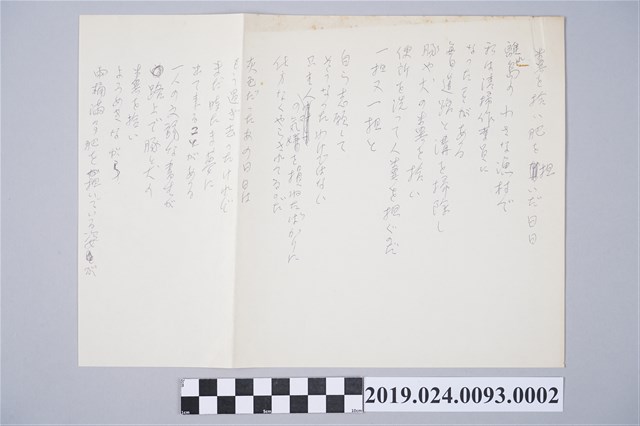 糞を拾い肥を担いだ日日
離島の小さな漁村で
私は清掃作業員に
なったことがある
毎日道路と溝を掃除し
豚や犬の糞を拾い
便所を洗って人糞を担ぐのだ
一担又一担と
自ら志願して
そうなったわけではない
只主人の
の気嫌を損ねたばかりに
仕方なくやらされてるのだ
灰色だったあの日日は
もう過ぎ去ったけれど
まだ時たま夢に
出てくることがある
一人の文弱な書生が
路上で豚と犬の
糞を拾い
よろめきながら
両桶満の肥を担いでいる姿が
2019.024.0093.0002